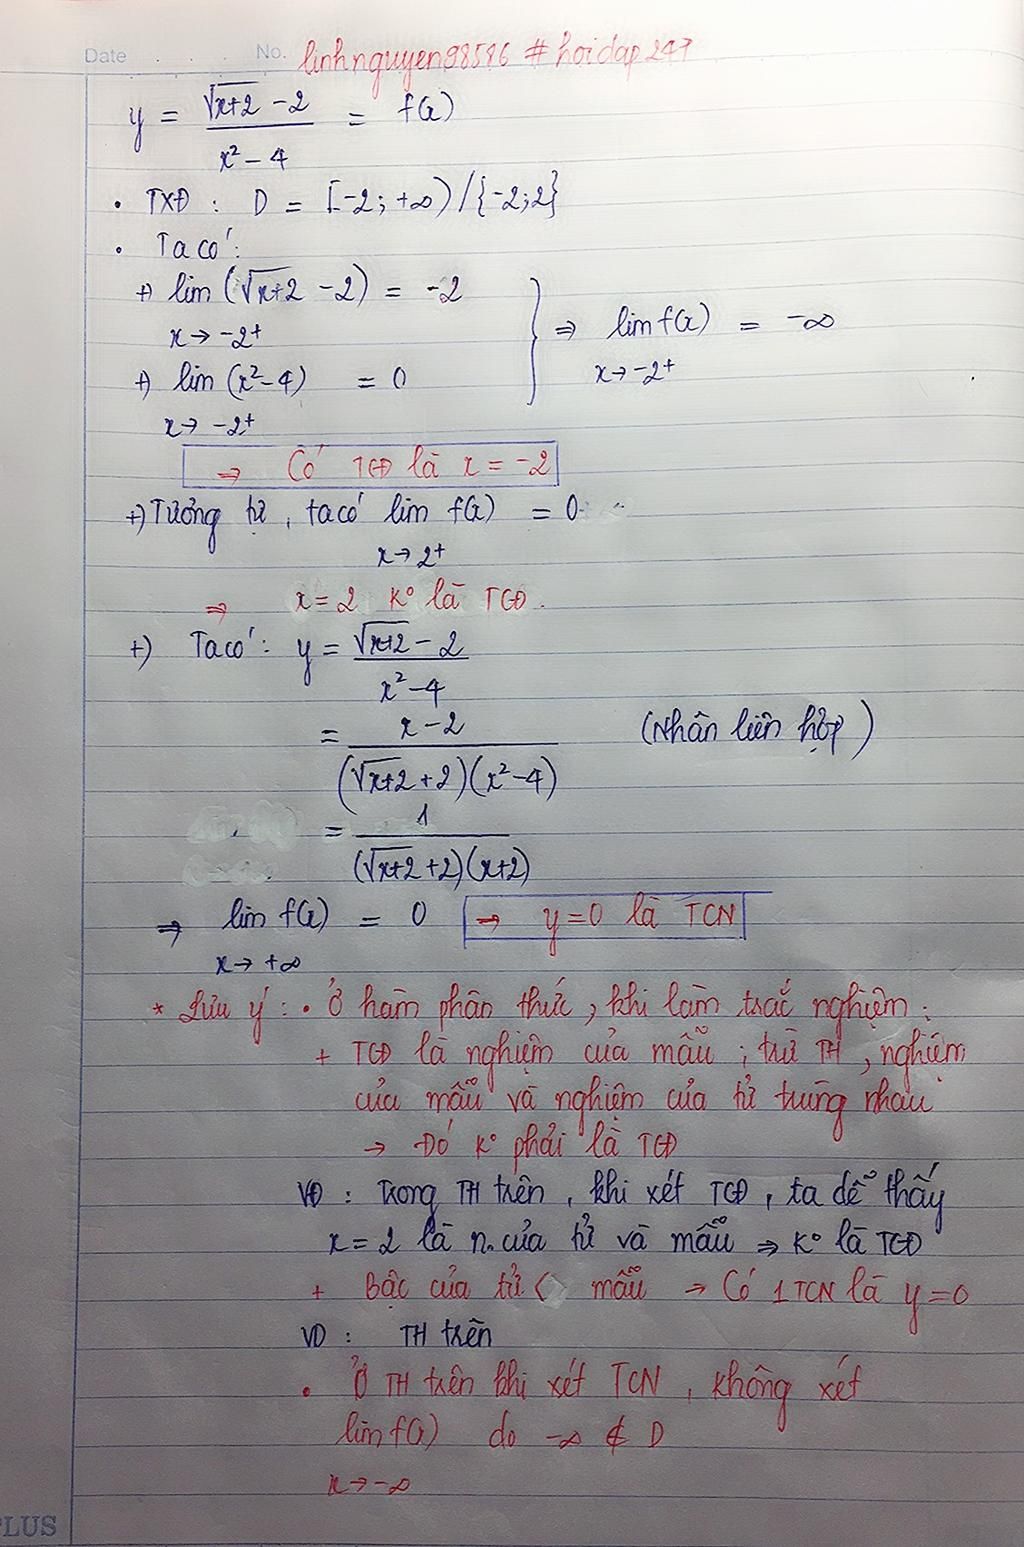 Date No. linhnguyen98586 # hoidap247
y = (√(x+2) - 2) / (x² - 4) = f(x)
• TXĐ : D = [-2; +∞) / {-2; 2}
• Ta có :
+) lim (√(x+2) - 2) = -2
x → -2⁺
⇒ lim f(x) = -∞
x → -2⁺
+) lim (x² - 4) = 0
x → -2⁺
⇒ Có TCĐ là x = -2
+) Tương tự, ta có lim f(x) = 0
x → 2⁺
⇒ x = 2 K° là TCĐ.
+) Ta có : y = (√(x+2) - 2) / (x² - 4)
= (x - 2) / ((√(x+2) + 2)(x² - 4)) (Nhân liên hợp)
= 1 / ((√(x+2) + 2)(x+2))
⇒ lim f(x) = 0 ⇒ y = 0 là TCN
x → +∞
* Lưu ý : • Ở hàm phân thức, khi làm trắc nghiệm :
+ TCĐ là nghiệm của mẫu ; trừ TH, nghiệm
của mẫu và nghiệm của tử trùng nhau
→ Đó K° phải là TCĐ
VD : Trong TH trên, khi xét TCĐ, ta dễ thấy
x = 2 là n. của tử và mẫu ⇒ K° là TCĐ
+ Bậc của tử < mẫu → Có 1 TCN là y = 0
VD : TH trên
• Ở TH trên khi xét TCN, không xét
lim f(x) do -∞ ∉ D
x → -∞
PLUS